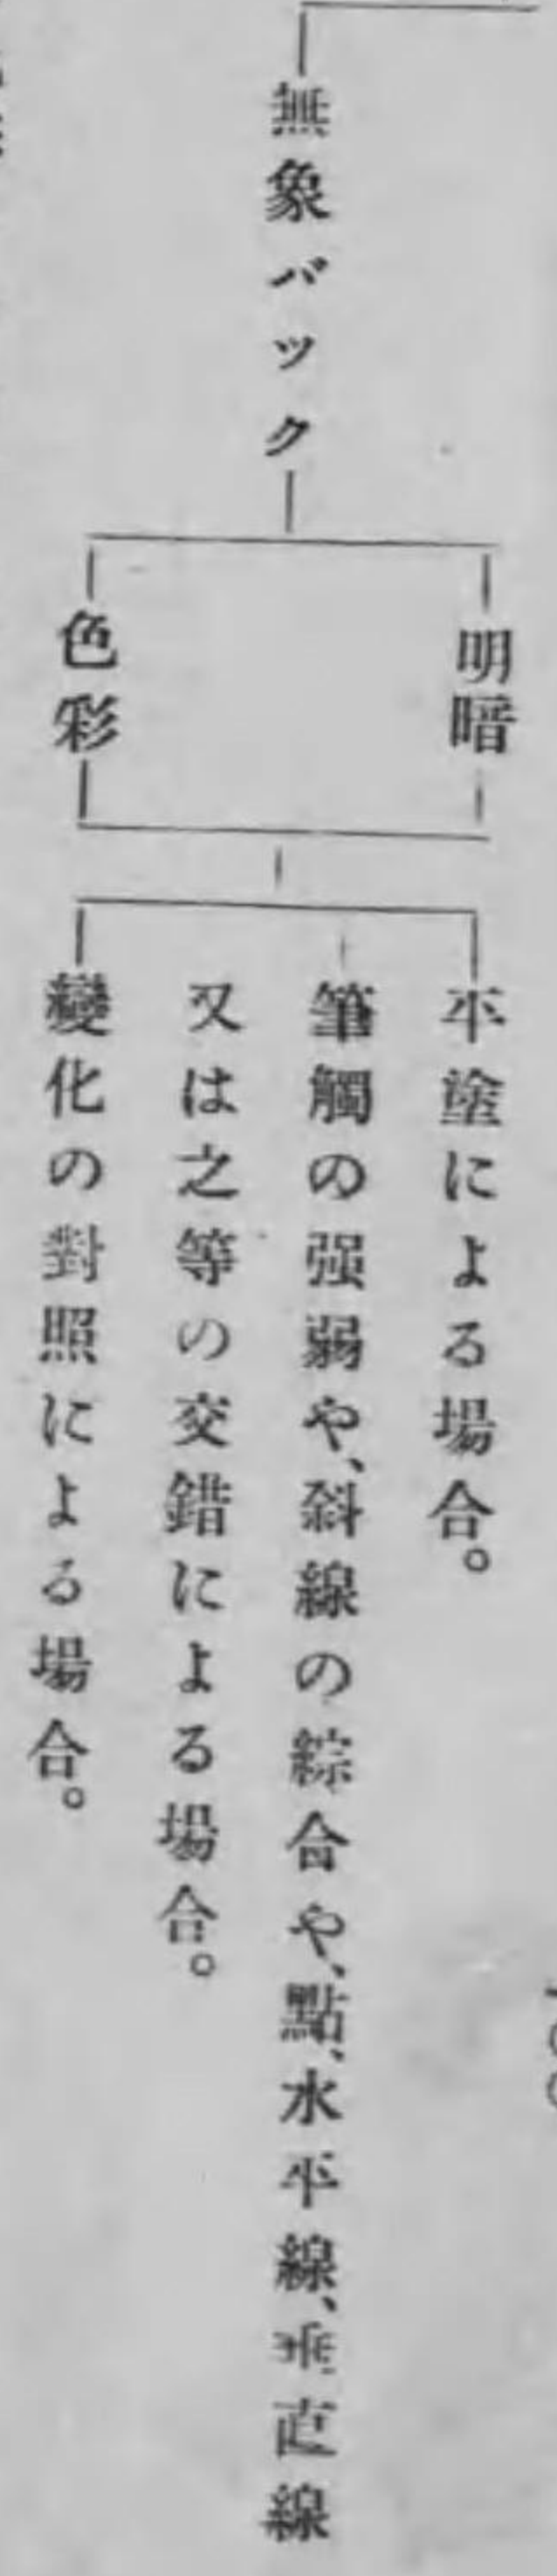 無象バック
明暗
色彩
平塗による場合。
筆觸の强弱や、斜線の綜合や、點、水平線、垂直線
又は之等の交錯による場合。
變化の對照による場合。